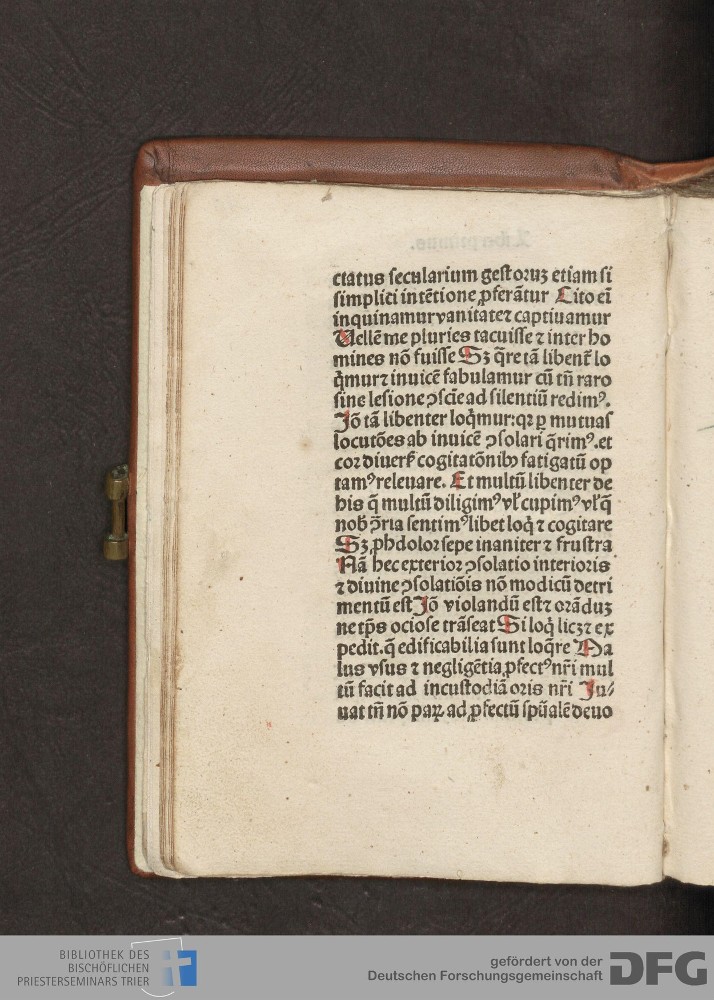 ctatus secularium gestoruʒ etiam si
simplici intētione ꝓferātur Cito eī
inquinamur vanitate ⁊ captiuamur
Uellē me pluries tacuisse ⁊ inter ho
mines nō fuisse Sʒ q̄re tā libent̄ lo
qͥmur ⁊ inuicē fabulamur cū tn̄ raro
sine lesione ꝯsciē ad silentiū redimꝰ.
Jō tā libenter loqͥmur: qꝛ ꝑ mutuas
locutōes ab inuicē ꝯsolari q̄rimꝰ. et
cor diuers̄ cogitatōnibꝰ fatigatū op
tamꝰ releuare. Et multū libenter de
his q̄ multū diligimꝰ vł cupimꝰ vł q̄
nob̄ ꝯ̄ria sentimꝰ libet loqͥ ⁊ cogitare
Sʒ ꝓh dolor sepe inaniter ⁊ frustra
Nā hec exterior ꝯsolatio interioris
⁊ diuine ꝯsolatiōis nō modicū detri
mentū est Jō violandū est ⁊ orāduʒ
ne tp̄s ociose trāseat Si loqͥ licʒ ⁊ ex
pedit. q̄ edificabilia sunt loq̄re Ma
lus vsus ⁊ negligētia ꝓfectꝰ nr̄i mul
tū facit ad incustodiā oris nr̄i Ju⸗
uat tn̄ nō paꝝ ad ꝓfectū spūalē deuo
BIBLIOTHEK DES
BISCHÖFLICHEN
PRIESTERSEMINARS TRIER
gefördert von der
Deutschen Forschungsgemeinschaft DFG